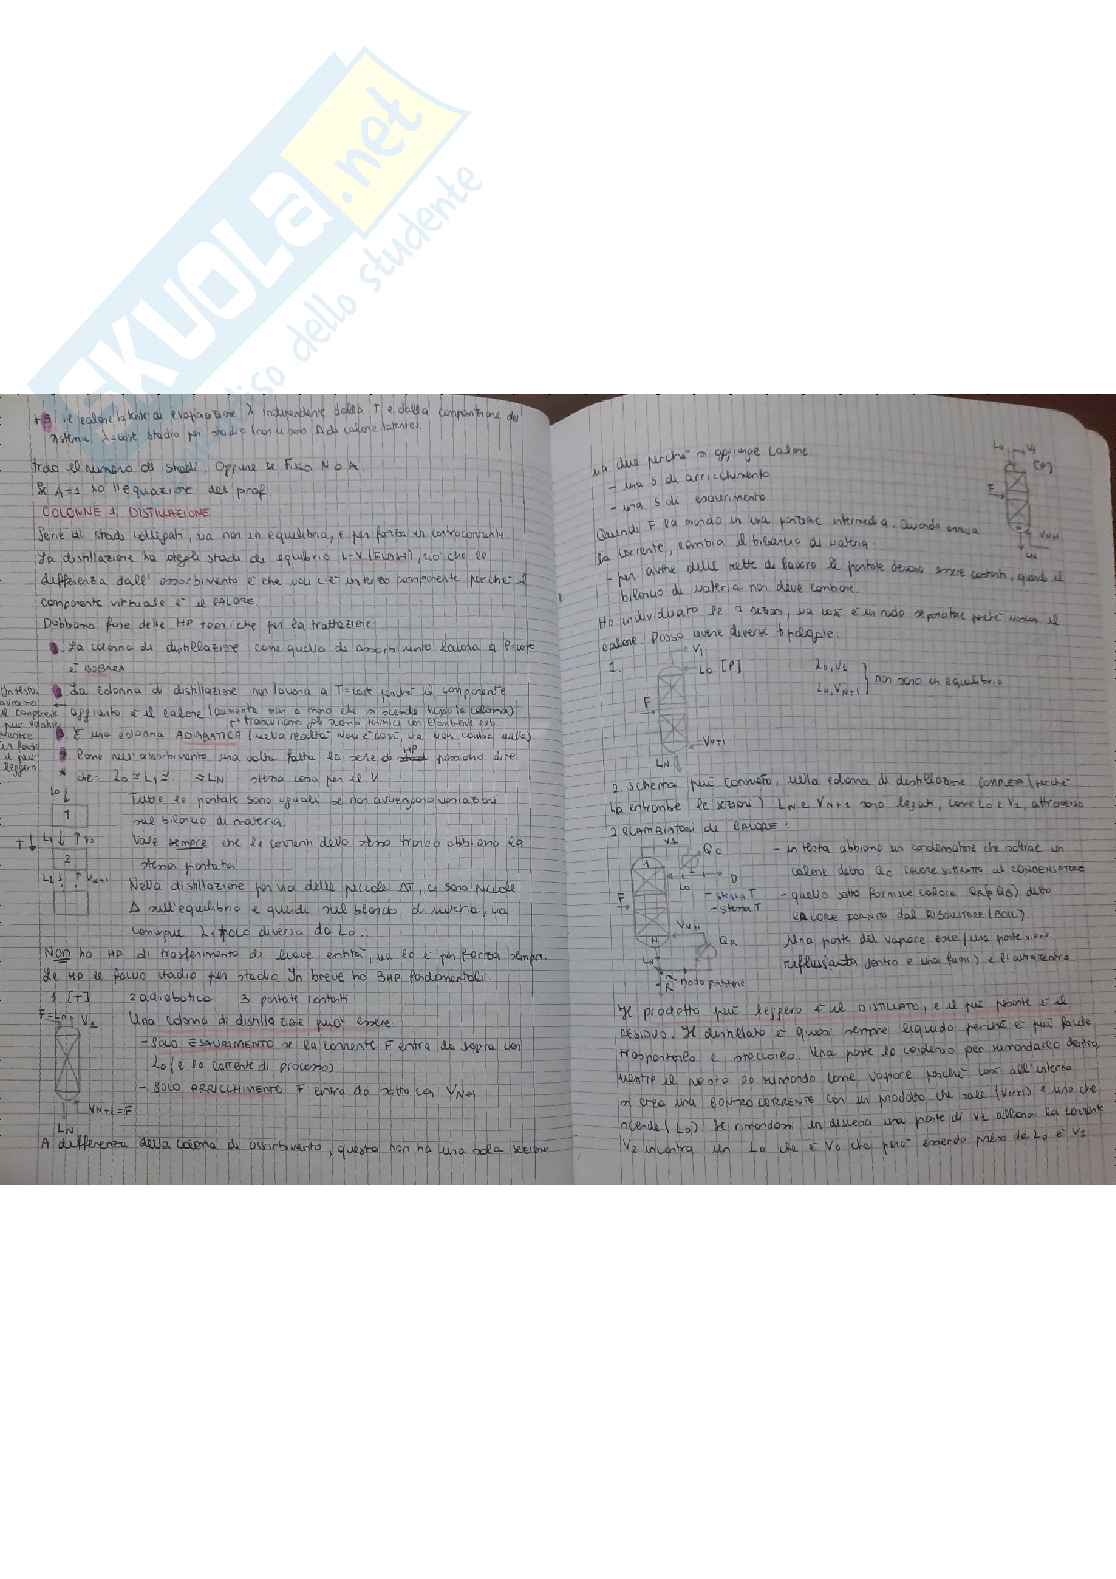 SKUOLA.net
paradiso dello studente
+ 5. il calore latente di evaporazione λ indipendente dalla T e dalla composizione del
sistema, λ=cost stadio per stadio (non ci sono Δ di calore latente).
trovo il numero di stadi. Oppure se Fisso N ho A.
Se A=1 ho l'equazione del prof
COLONNE DI DISTILLAZIONE
Serie di stadi collegati, ma non in equilibrio, e per forza in controcorrente
La distillazione ha degli stadi di equilibrio L-V (FLASH), ciò che fa
differenza dall'assorbimento è che qui c'è un terzo componente perché il
componente virtuale è il CALORE.
Dobbiamo fare delle HP teoriche per la trattazione:
La colonna di distillazione come quella di assorbimento lavora a P=cost
è ISOBARA
La colonna di distillazione non lavora a T=cost perché il componente
aggiunto è il calore (aumenta man a mano che si scende lungo la colonna)
È una colonna ADIABATICA (nella realtà non è così, ma non cambia nulla)
In testa
avremo
il componente
più volatile
mentre
in fondo
il più
leggero
Come nell'assorbimento una volta fatta la serie di HP possiamo dire
che: L0 ≅ L1 ≅ ≅ LN stessa cosa per le V
Tutte le portate sono uguali se non avvengono variazioni
sul bilancio di materia.
Vale sempre che le correnti dello stesso tronco abbiano la
stessa portata
Nella distillazione per via delle piccole ΔT, ci sono piccole
Δ sull'equilibrio e quindi sul bilancio di materia, ma
comunque L1 è poco diversa da L0..
L0
1
T L1 V2
2
L2 VN+1
Non ho HP di trasferimento di lieve entità, ma lo è per forza sempre.
Le HP le faccio stadio per stadio. In breve ho 3HP fondamentali:
1 [T] 2 adiabatica 3 portate costanti
F=L0 V1
Una colonna di distillazione può essere:
- SOLO ESAURIMENTO se la corrente F entra da sopra con
L0 (è la corrente di processo)
- SOLO ARRICCHIMENTO F entra da sotto con VN+1
VN+1=F
LN
A differenza della colonna di assorbimento, questa non ha una sola sezione
ma due perché si aggiunge calore
- una S di arricchimento
- una S di esaurimento
L0 V1
[P]
F
VN+1
LN
Quindi F la mando in una posizione intermedia. Quando arriva
la corrente, cambia il bilancio di materia:
- per avere delle rette di lavoro le portate devono essere costanti, quindi il
bilancio di materia non deve cambiare.
Ho individuato le 2 sezioni, ma così è un modo separatore perché manca il
calore. Posso avere diverse tipologie.
1.
V1
L0 [P]
F
VN+1
LN
L0, V1
LN, VN+1
non sono in equilibrio
2 Schema più corretto, nella colonna di distillazione completa (perché
ha entrambe le sezioni) LN e VN+1 sono legati, come L0 e V1, attraverso
2 SCAMBIATORI di CALORE:
V1 QC
1
L0 D
F
- stessa T
- stessa T
N
VN+1
QR
LN
R nodo partitore
- in testa abbiamo un condensatore che sottrae un
calore detto QC CALORE SOTTRATTO al CONDENSATORE
- quello sotto fornisce calore QR (o QB) detto
CALORE FORNITO DAL RIBOLLITORE (BOIL)
Una parte del vapore esce (una parte viene
riflussata dentro e una fuori) e l'altra rientra
Il prodotto più leggero è il DISTILLATO, e il più pesante è il
RESIDUO. Il distillato è quasi sempre liquido perché è più facile
trasportarlo e stoccarlo. Una parte la condenso per rimandarla dentro
mentre il resto lo rimando come vapore perché così all'interno
si crea una CONTROCORRENTE con un prodotto che sale (VN+1) e uno che
scende (L0) Se rimandassi in discesa una parte di V1 allora la corrente
V2 incontra un L0 che è V0 che però essendo preso da L0 è V1